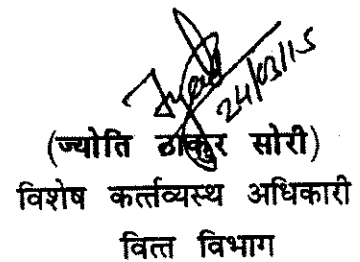 24/03/15
(ज्योति ठाकुर सोरी)
विशेष कर्त्तव्यस्थ अधिकारी
वित्त विभाग